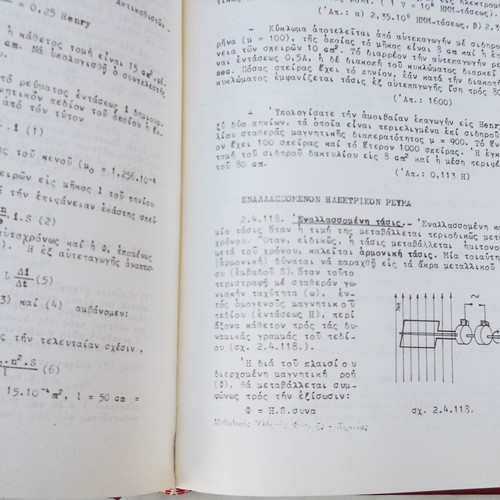 = 0.25 Henry
Ἀντικαθιστῶν,
ἡ κάθετος τομή εἶναι 15 cm²,
cm. Νά ὑπολογισθῇ ὁ συντελεστής
ό ρεύματος ἐντάσεως 1 δημιουρ-
γνητικόν πεδίον τοῦ ὁποίου ἡ ἔν-
ἀπό τόν τύπον
.i (1)
ς τοῦ κενοῦ (μ₀ = 1.256.10⁻⁶
ειρῶν εἰς μῆκος 1 τοῦ πηνίου.
ά τήν ἐπιφάνειαν ἑκάστης σπεί-
i.S (2)
αὐτοχρόνως καί ἡ Φ, ἑπομένως
). Ἡ ἐξ αὐτεπαγωγῆς ἀναπτυ-
L Δi/Δt (5)
3) καί (4) λαμβάνομεν:
ς τήν τελευταίαν σχέσιν,
.n².S/l (6)
15.10⁻⁴m², l = 50 cm =
HMM-τάσεως).
('Απ.: α) 2,35.10⁸ HMM-τάσεως, β) 2,3
- Κύκλωμα ἀποτελεῖται ἀπό αὐτεπαγωγήν μέ σιδηρο
ρῆνα (μ = 100), τῆς ὁποίας τό μῆκος εἶναι 8 cm καί ἡ ἐπ
νεια τῶν σπειρῶν 10 cm². Τό διαρρέον τήν αὐτεπαγωγήν ρε
ναι ἐντάσεως 0,5Α, ἡ δέ διακοπή τοῦ κυκλώματος διαρκεῖ
sec. Πόσας σπείρας ἔχει τό πηνίον, ἐάν κατά τήν διακοπή
κυκλώματος ἐμφανίζεται τάσις ἐξ αὐτεπαγωγῆς ἴση πρός 80
('Απ.: 1600)
- Ὑπολογίσατε τήν ἀμοιβαίαν ἐπαγωγήν εἰς Henry
ξύ δύο πηνίων, τά ὁποῖα εἶναι περιελιγμένα ἐπί σιδηροῦ
λίου σταθερᾶς μαγνητικῆς διαπερατότητος μ = 900. Τό ἕν
ον ἔχει 100 σπείρας καί τό ἕτερον 1000 σπείρας. Ἡ ἐγκ
τομή τοῦ σιδηροῦ δακτυλίου εἰς 8 cm² καί ἡ μέση περιφέ
τοῦ 80 cm.
('Απ.: 0,113 H)
ΕΝΑΛΛΑΣΣΟΜΕΝΟΝ ΗΛΕΚΤΡΙΚΟΝ ΡΕΥΜΑ
2.4.118. Ἐναλλασσομένη τάσις.- Ἐναλλασσομένη κα
μία τάσις ὅταν ἡ τιμή της μεταβάλλεται περιοδικῶς μετ
χρόνου. Ὅταν, εἰδικῶς, ἡ τάσις μεταβάλλεται ἡμιτονο
μετά τοῦ χρόνου, καλεῖται ἁρμονική τάσις. Μία τοιαύτη
(ἁρμονική) δύναται νά παραχθῇ εἰς τά ἄκρα μεταλλικοῦ
ου (ἐμβαδοῦ S), ὅταν τοῦτο
περιστραφῇ μέ σταθεράν γω-
νιακήν ταχύτητα (ω), ἐν-
τός ὁμογενοῦς μαγνητικοῦ
πεδίου (ἐντάσεως Η), περί
ἄξονα κάθετον πρός τάς δυ-
ναμικάς γραμμάς τοῦ πεδί-
ου (σχ. 2.4.118.).
Ἡ διά τοῦ πλαισίου
διερχομένη μαγνητική ροή
(Φ), θά μεταβάλλεται συμ-
φώνως πρός τήν ἐξίσωσιν:
Φ = H.S.συνα
σχ. 2.4.118.